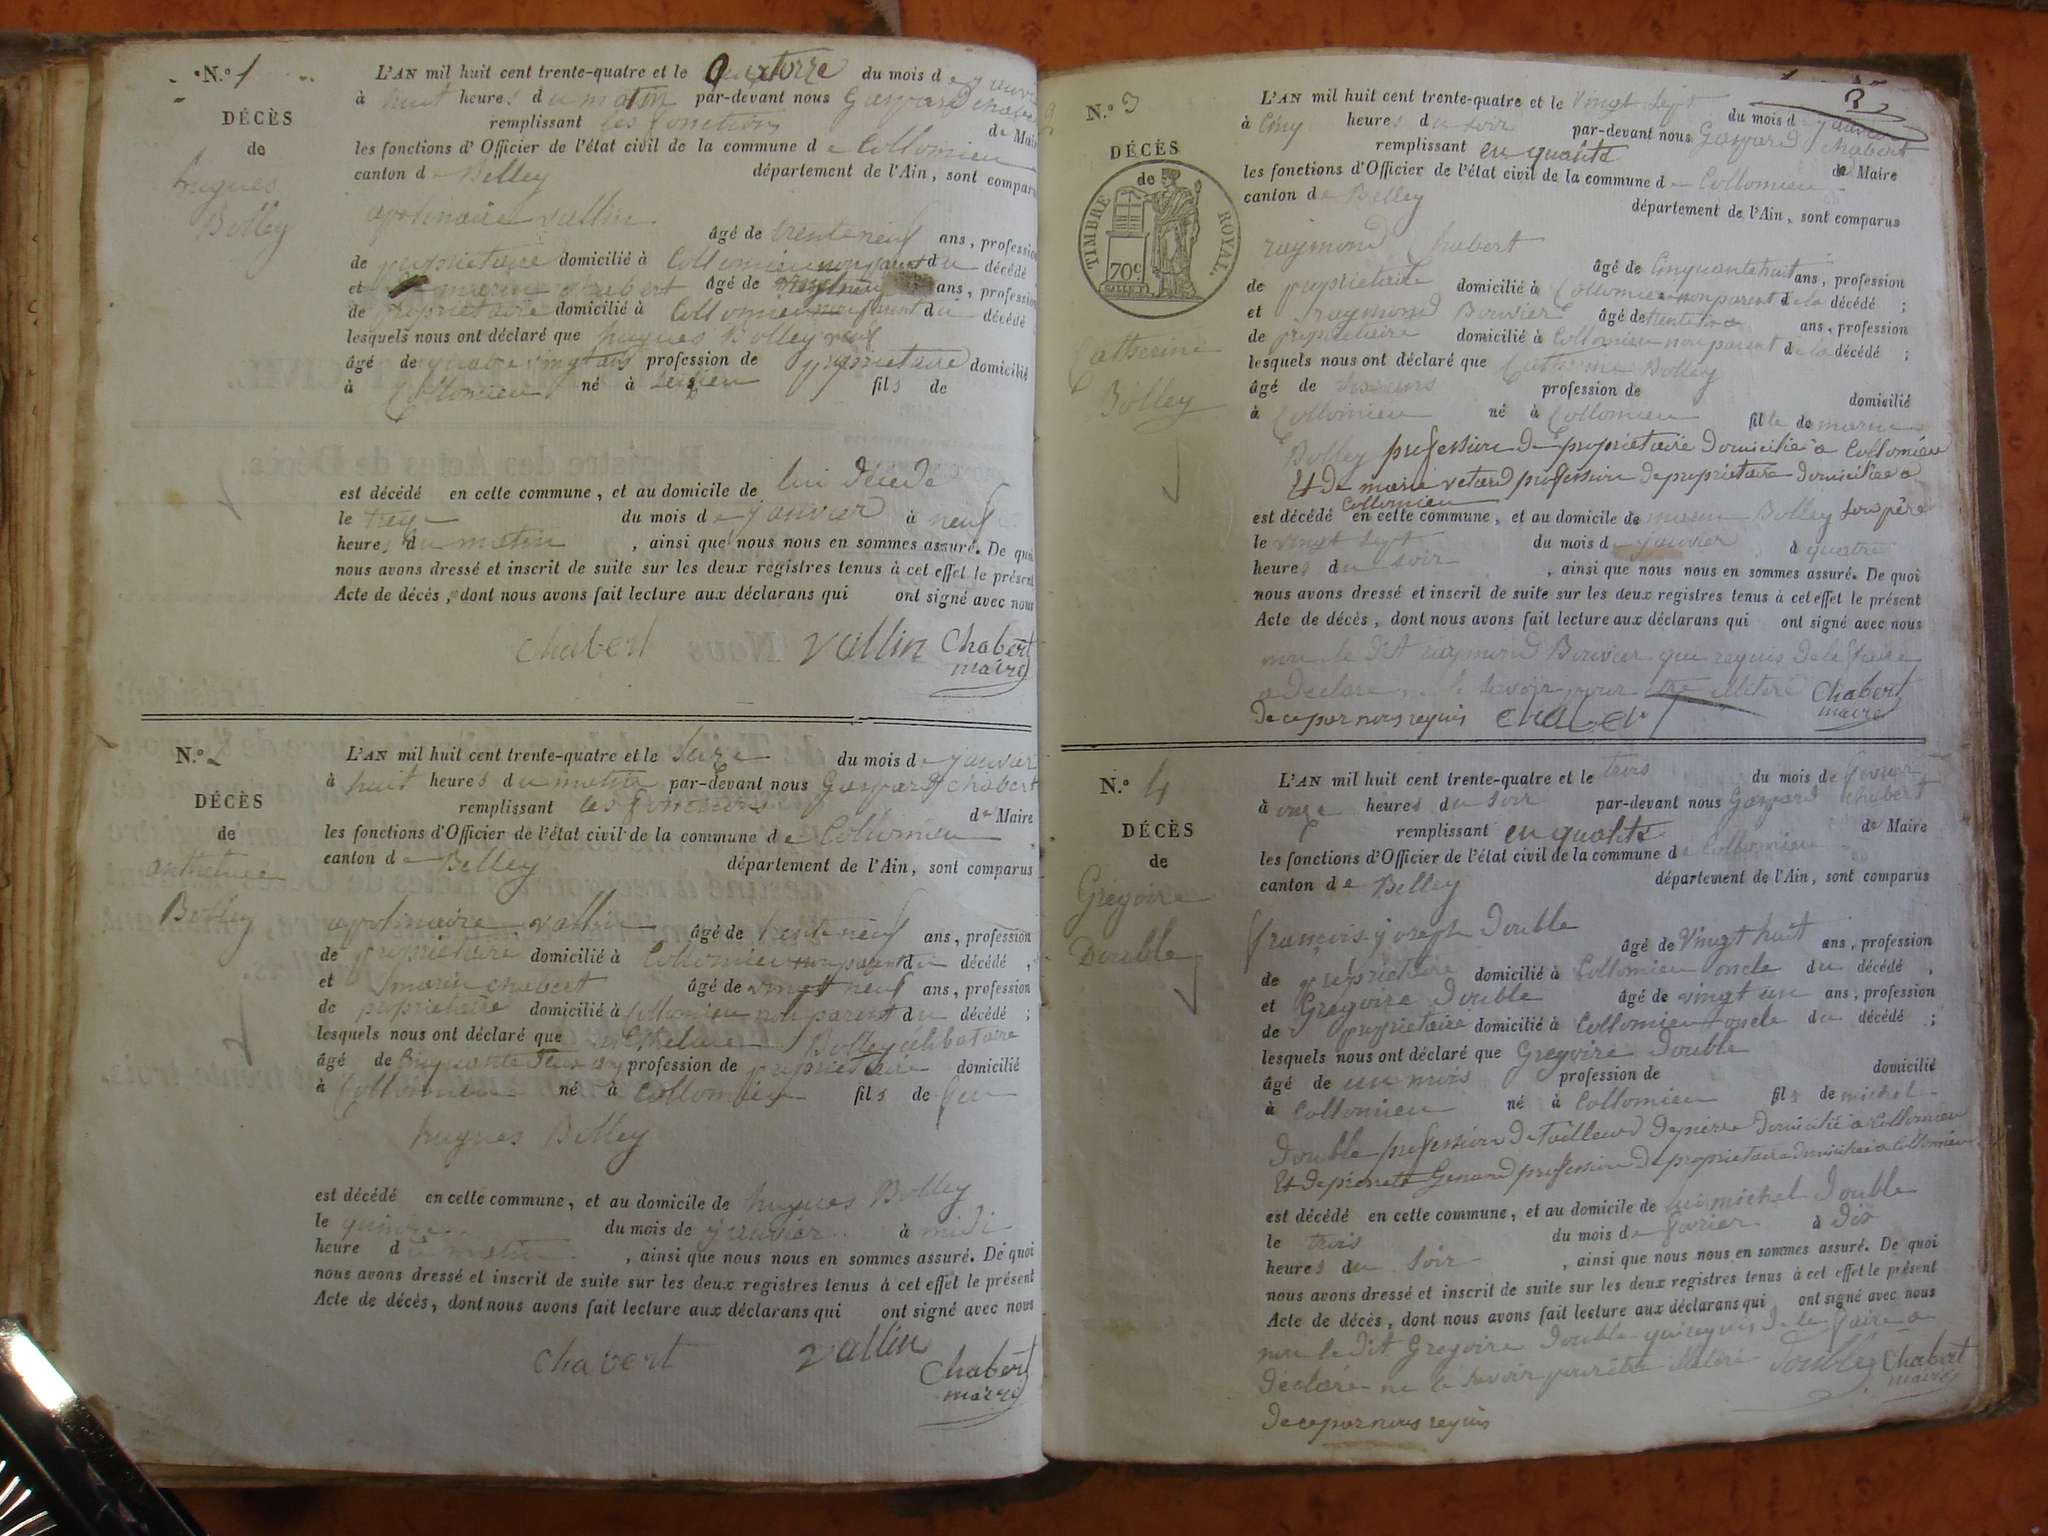 N.º 1
DÉCÈS
de
hugues
Bolley
L'AN mil huit cent trente-quatre et le quatorze du mois de janvier
à huit heures du matin par-devant nous Gaspard chabert
remplissant les fonctions de Maire
les fonctions d'Officier de l'état civil de la commune de Collomieu
canton de Belley département de l'Ain, sont comparus
apolinaire vallin
âgé de trente neuf ans, profession
de propriétaire domicilié à Collomieu non parent du décédé
et marin chabert âgé de ans, profession
de propriétaire domicilié à Collomieu non parent du décédé
lesquels nous ont déclaré que hugues Bolley
âgé de quatre vingt ans profession de propriétaire domicilié
à Collomieu né à fils de
est décédé en cette commune, et au domicile de lui décédé
le treize du mois de janvier à neuf
heures du matin, ainsi que nous nous en sommes assuré. De quoi
nous avons dressé et inscrit de suite sur les deux registres tenus à cet effet le présent
Acte de décès, dont nous avons fait lecture aux déclarans qui ont signé avec nous
chabert vallin Chabert
maire
N.º 2
DÉCÈS
de
Bolley
L'AN mil huit cent trente-quatre et le seize du mois de janvier
à huit heures du matin par-devant nous Gaspard chabert
remplissant les fonctions de Maire
les fonctions d'Officier de l'état civil de la commune de Collomieu
canton de Belley département de l'Ain, sont comparus
apolinaire vallin âgé de trente neuf ans, profession
de propriétaire domicilié à Collomieu non parent du décédé,
et marin chabert âgé de vingt neuf ans, profession
de propriétaire domicilié à Collomieu non parent du décédé;
lesquels nous ont déclaré que Bolley célibataire
âgé de Cinquante ans profession de propriétaire domicilié
à Collomieu né à Collomieu fils de feu
hugues Bolley
est décédé en cette commune, et au domicile de hugues Bolley
le quinze du mois de janvier à midi
heure du matin, ainsi que nous nous en sommes assuré. De quoi
nous avons dressé et inscrit de suite sur les deux registres tenus à cet effet le présent
Acte de décès, dont nous avons fait lecture aux déclarans qui ont signé avec nous
chabert vallin
Chabert
maire
3
N.º 3
DÉCÈS
de
TIMBRE ROYAL.
70c
Catherine
Bolley
L'AN mil huit cent trente-quatre et le vingt sept du mois de janvier
à Cinq heures du soir par-devant nous Gaspard chabert
remplissant en qualité de Maire
les fonctions d'Officier de l'état civil de la commune de Collomieu
canton de Belley département de l'Ain, sont comparus
raymond chabert
âgé de Cinquante huit ans, profession
de propriétaire domicilié à Collomieu non parent de la décédé;
et raymond Bouvier âgé de ans, profession
de propriétaire domicilié à Collomieu non parent de la décédé;
lesquels nous ont déclaré que Catherine Bolley
âgé de profession de domicilié
à Collomieu né à Collomieu fille de marin
Bolley profession de propriétaire domicilié a Collomieu
Et de marie profession de propriétaire domiciliée a
Collomieu
est décédé en cette commune, et au domicile de marin Bolley son père
le vingt sept du mois de janvier à quatre
heures du soir, ainsi que nous nous en sommes assuré. De quoi
nous avons dressé et inscrit de suite sur les deux registres tenus à cet effet le présent
Acte de décès, dont nous avons fait lecture aux déclarans qui ont signé avec nous
non le dit raymond Bouvier qui requis de le faire
a declaré ne le savoir pour être illitéré Chabert
de ce par nous requis chabert maire
N.º 4
DÉCÈS
de
Grégoire
Double
L'AN mil huit cent trente-quatre et le trois du mois de fevrier
à onze heures du soir par-devant nous Gaspard chabert
remplissant en qualité de Maire
les fonctions d'Officier de l'état civil de la commune de Collomieu
canton de Belley département de l'Ain, sont comparus
françois joseph Double
âgé de vingt huit ans, profession
de propriétaire domicilié à Collomieu oncle du décédé,
et Grégoire Double âgé de vingt un ans, profession
de propriétaire domicilié à Collomieu oncle du décédé;
lesquels nous ont déclaré que Grégoire Double
âgé de un mois profession de domicilié
à Collomieu né à Collomieu fils de michel
Double profession de Tailleur de pierre domicilié a Collomieu
Et de pierrette profession de propriétaire domiciliée a Collomieu
est décédé en cette commune, et au domicile de michel Double
le trois du mois de fevrier à dix
heures du soir, ainsi que nous nous en sommes assuré. De quoi
nous avons dressé et inscrit de suite sur les deux registres tenus à cet effet le présent
Acte de décès, dont nous avons fait lecture aux déclarans qui ont signé avec nous
non le dit Grégoire Double qui requis de le faire a
déclaré ne le savoir pour être illitéré Double Chabert
maire
de ce par nous requis